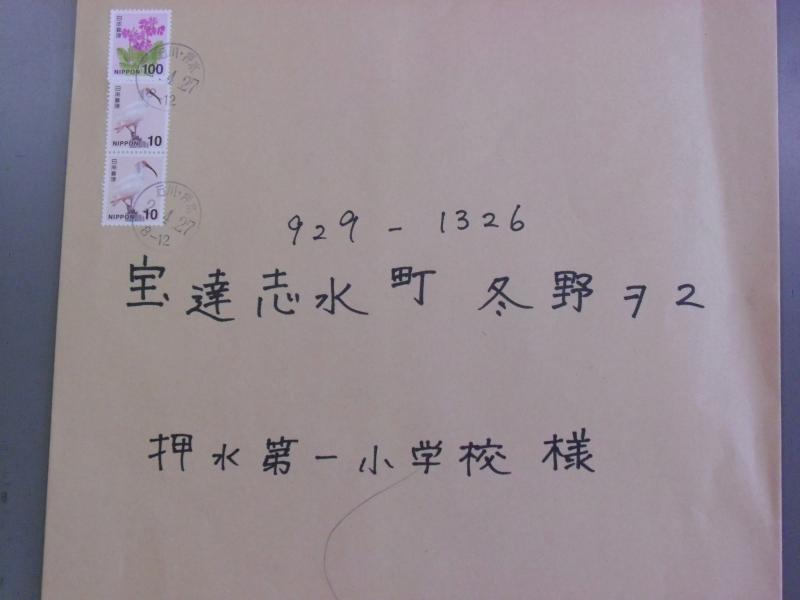 日本郵便
NIPPON 100
日本郵便
NIPPON 10
日本郵便
NIPPON 10
2.4.27
8-12
929-1326
宝達志水町 冬野ヲ2
押水第一小学校 様